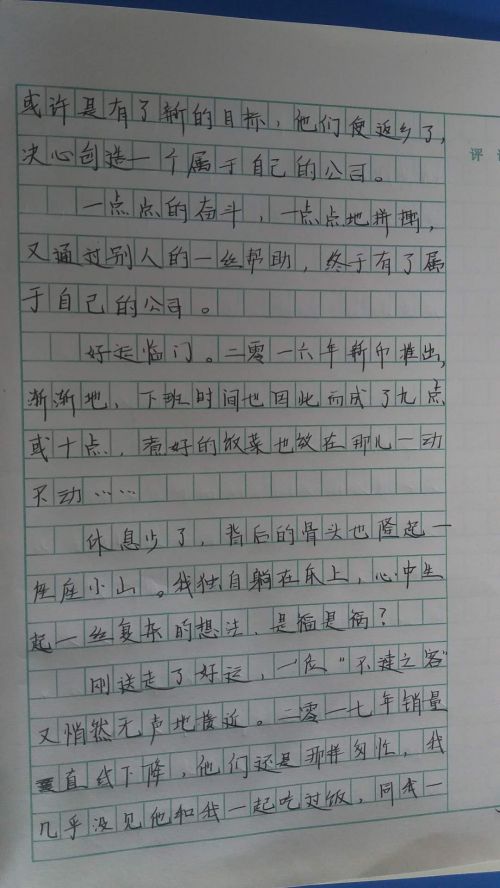 或许是有了新的目标，他们便返乡了，
评
决心创造一个属于自己的公司。
一点点的奋斗，一点点地拼搏，
又通过别人的一丝帮助，终于有了属
于自己的公司。
好运临门。二零一六年新币推出，
渐渐地，下班时间也因此而成了九点
或十点，煮好的饭菜也放在那儿一动
不动……
休息少了，背后的骨头也隆起一
座座小山。我独自躺在床上，心中生
起一丝复杂的想法，是福是祸？
刚送走了好运，一位“不速之客”
又悄然无声地接近。二零一七年销量
直线下降，他们还是那样匆忙，我
几乎没见他和我一起吃过饭，同我一